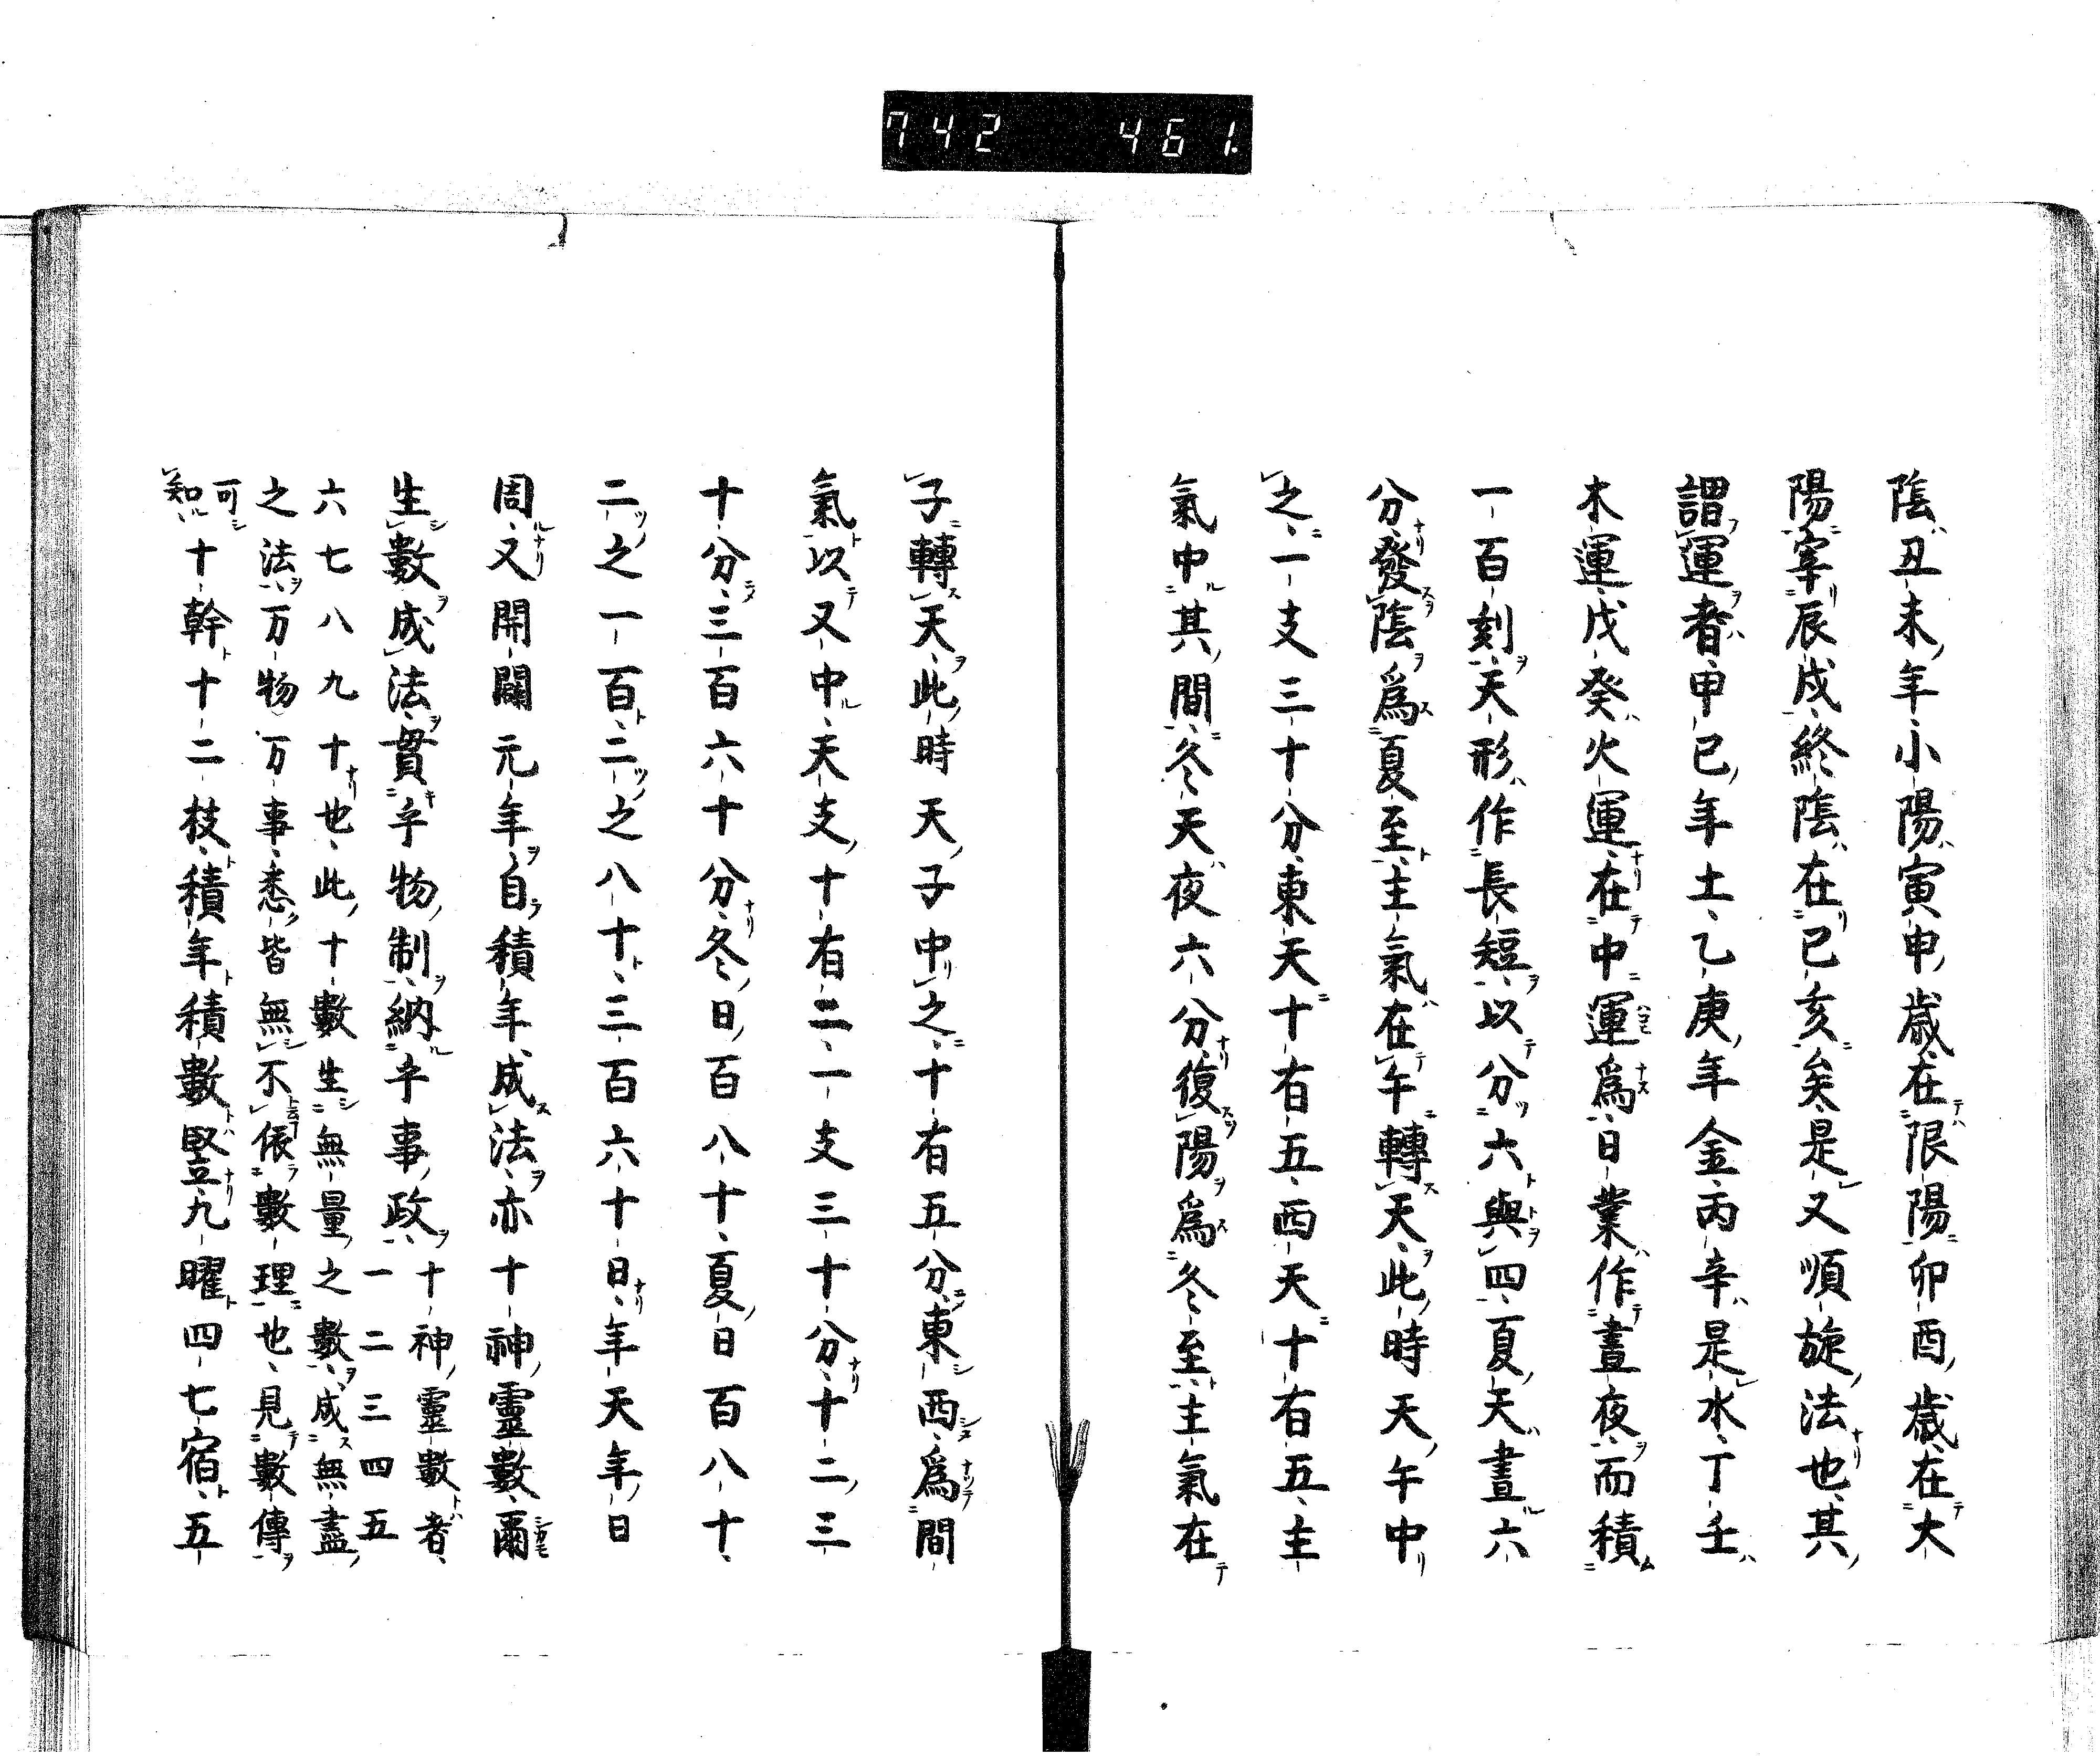 742 461.
陰丑未年小陽寅申歳在限陽卯酉歳在大
陽宰辰戌終陰在已亥矣是又順旋法也其
謂運者甲已年土乙庚年金丙辛是水丁壬
木運戊癸火運在中運爲日業作晝夜而積
一百刻天形作長短以分六與四夏天晝六
分發陰爲夏至主氣在午轉天此時天午中
之一支三十分東天十有五西天十有五主
氣中其間冬天夜六分復陽爲冬至主氣在
子轉天此時天子中之十有五分東西爲間
氣以又中天支十有二一支三十分十二三
十分三百六十分冬日百八十夏日百八十
二之一百二之八十三百六十日年天年日
周又開闢元年自積年成法亦十神靈數爾
生數成法貫乎物制納乎事政十神靈數者
一二三四五
六七八九十也此十數生無量之數成無盡
之法万物万事悉皆無不依數理也見數傳
可知十幹十二枝積年積數竪九曜四七宿五